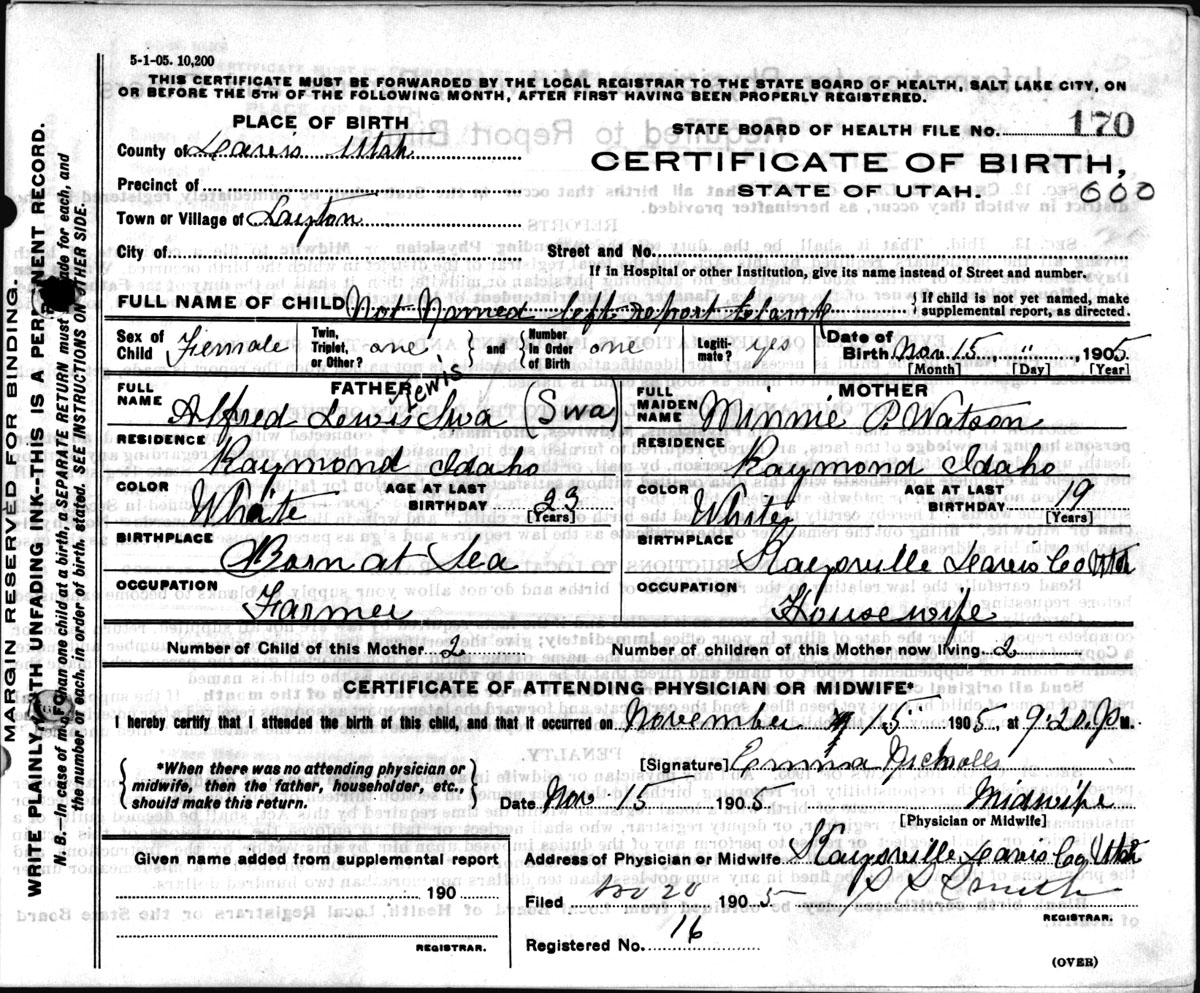 5-1-05. 10,200
THIS CERTIFICATE MUST BE FORWARDED BY THE LOCAL REGISTRAR TO THE STATE BOARD OF HEALTH, SALT LAKE CITY, ON
OR BEFORE THE 5TH OF THE FOLLOWING MONTH, AFTER FIRST HAVING BEEN PROPERLY REGISTERED.
PLACE OF BIRTH
STATE BOARD OF HEALTH FILE No. 170
County of Davis Utah
CERTIFICATE OF BIRTH,
Precinct of
STATE OF UTAH. 600
Town or Village of Layton
City of Street and No.
If in Hospital or other Institution, give its name instead of Street and number.
FULL NAME OF CHILD Not Named left report blank { If child is not yet named, make
supplemental report, as directed.
Sex of Child Female Twin, Triplet, or Other? one } and { Number in Order of Birth one Legitimate? yes Date of Birth Nov 15 " , 1905
[Month] [Day] [Year]
FATHER MOTHER
Lewis
FULL NAME Alfred Lewis Swa (Swa) FULL MAIDEN NAME Minnie P. Watson
RESIDENCE Raymond Idaho RESIDENCE Raymond Idaho
COLOR White AGE AT LAST BIRTHDAY 23 [Years] COLOR White AGE AT LAST BIRTHDAY 19 [Years]
BIRTHPLACE Born at Sea BIRTHPLACE Kaysville Davis Co Utah
OCCUPATION Farmer OCCUPATION Housewife
Number of Child of this Mother 2 Number of children of this Mother now living 2
CERTIFICATE OF ATTENDING PHYSICIAN OR MIDWIFE*
I hereby certify that I attended the birth of this child, and that it occurred on November 15 1905, at 9:20 P M.
*When there was no attending physician or
midwife, then the father, householder, etc.,
should make this return.
[Signature] Emma Nicholls
Date Nov 15 1905 Midwife
[Physician or Midwife]
Given name added from supplemental report
Address of Physician or Midwife Kaysville Davis Co Utah
190
Filed Nov 20 1905 Smith
REGISTRAR.
REGISTRAR.
Registered No. 16
(OVER)
MARGIN RESERVED FOR BINDING.
WRITE PLAINLY WITH UNFADING INK--THIS IS A PERMANENT RECORD.
N. B.--In case of more than one child at a birth, a SEPARATE RETURN must be made for each, and
the number of each, in order of birth, stated. SEE INSTRUCTIONS ON OTHER SIDE.